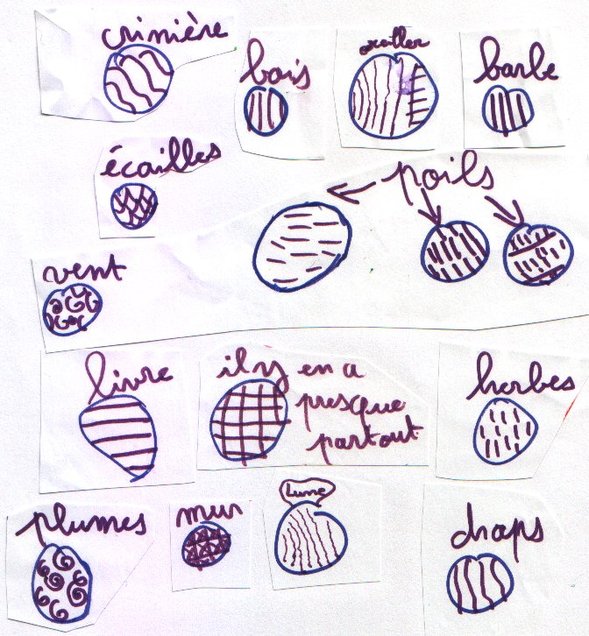 crinière
bois
barbe
écailles
poils
vent
livre
il y en a
presque
partout
herbes
plumes
mur
draps